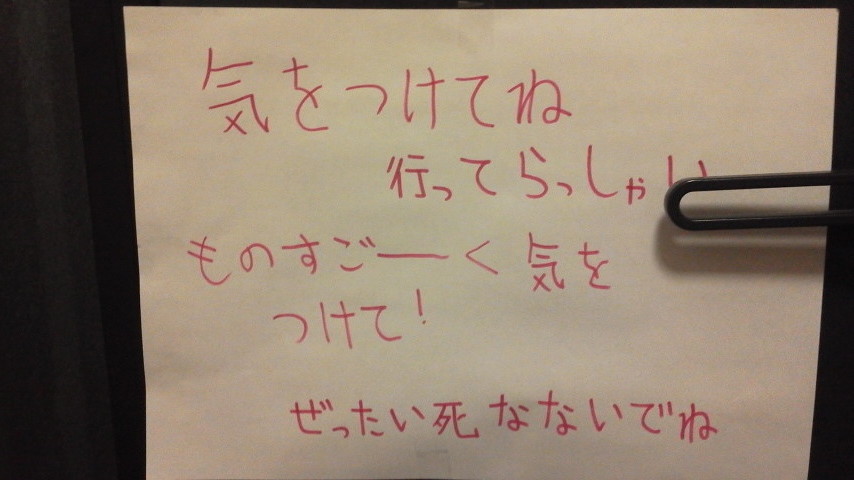 気をつけてね
行ってらっしゃい
ものすごーく気を
つけて!
ぜったい死なないでね